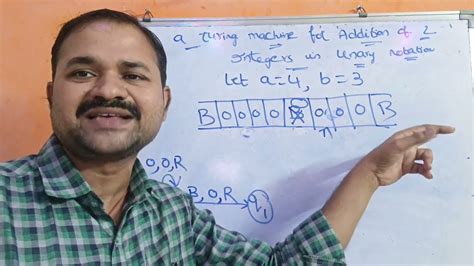 a Turing machine for Addition of 2
integers in unary notation
Let a=4, b=3
B 0 0 0 0 0 0 0 B
0,0,R
B,0,R q1